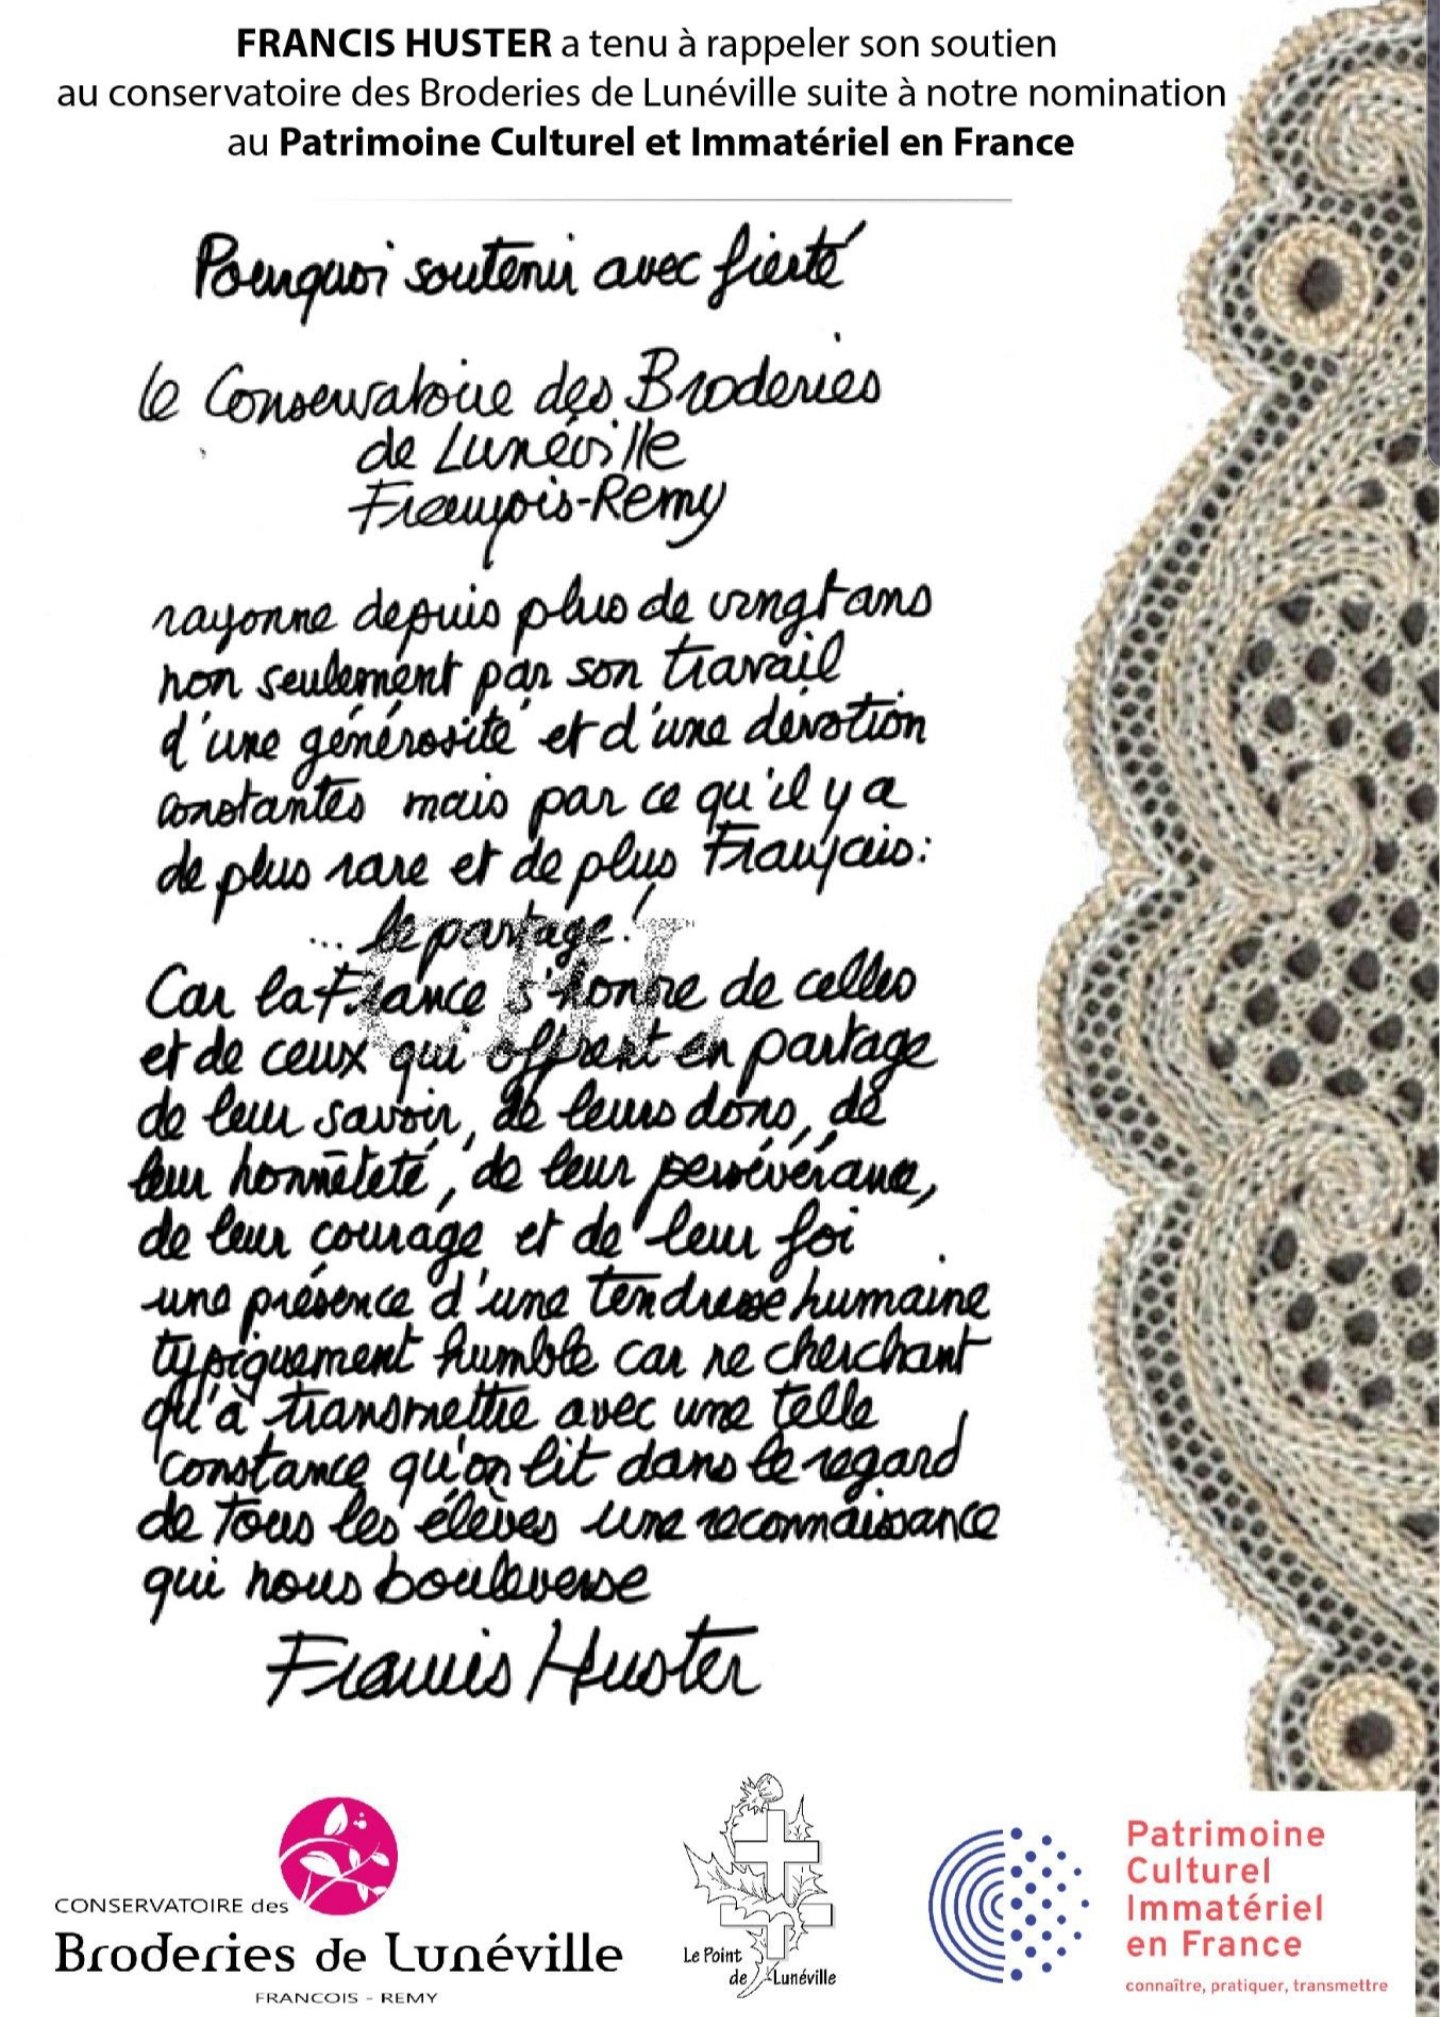 FRANCIS HUSTER a tenu à rappeler son soutien
au conservatoire des Broderies de Lunéville suite à notre nomination
au Patrimoine Culturel et Immatériel en France
Pourquoi soutenir avec fierté
le Conservatoire des Broderies
de Lunéville
François-Remy
rayonne depuis plus de vingt ans
non seulement par son travail
d'une générosité et d'une dévotion
constantes mais par ce qu'il y a
de plus rare et de plus Français:
... le partage!
Car la France s'honore de celles
et de ceux qui offrent en partage
de leur savoir, de leurs dons, de
leur honnêteté, de leur persévérance,
de leur courage et de leur foi
une présence d'une tendresse humaine
typiquement humble car ne cherchant
qu'à transmettre avec une telle
constance qu'on lit dans le regard
de tous les élèves une reconnaissance
qui nous bouleverse
Francis Huster
CONSERVATOIRE des
Broderies de Lunéville
FRANCOIS - REMY
Le Point
de Lunéville
Patrimoine
Culturel
Immatériel
en France
connaître, pratiquer, transmettre